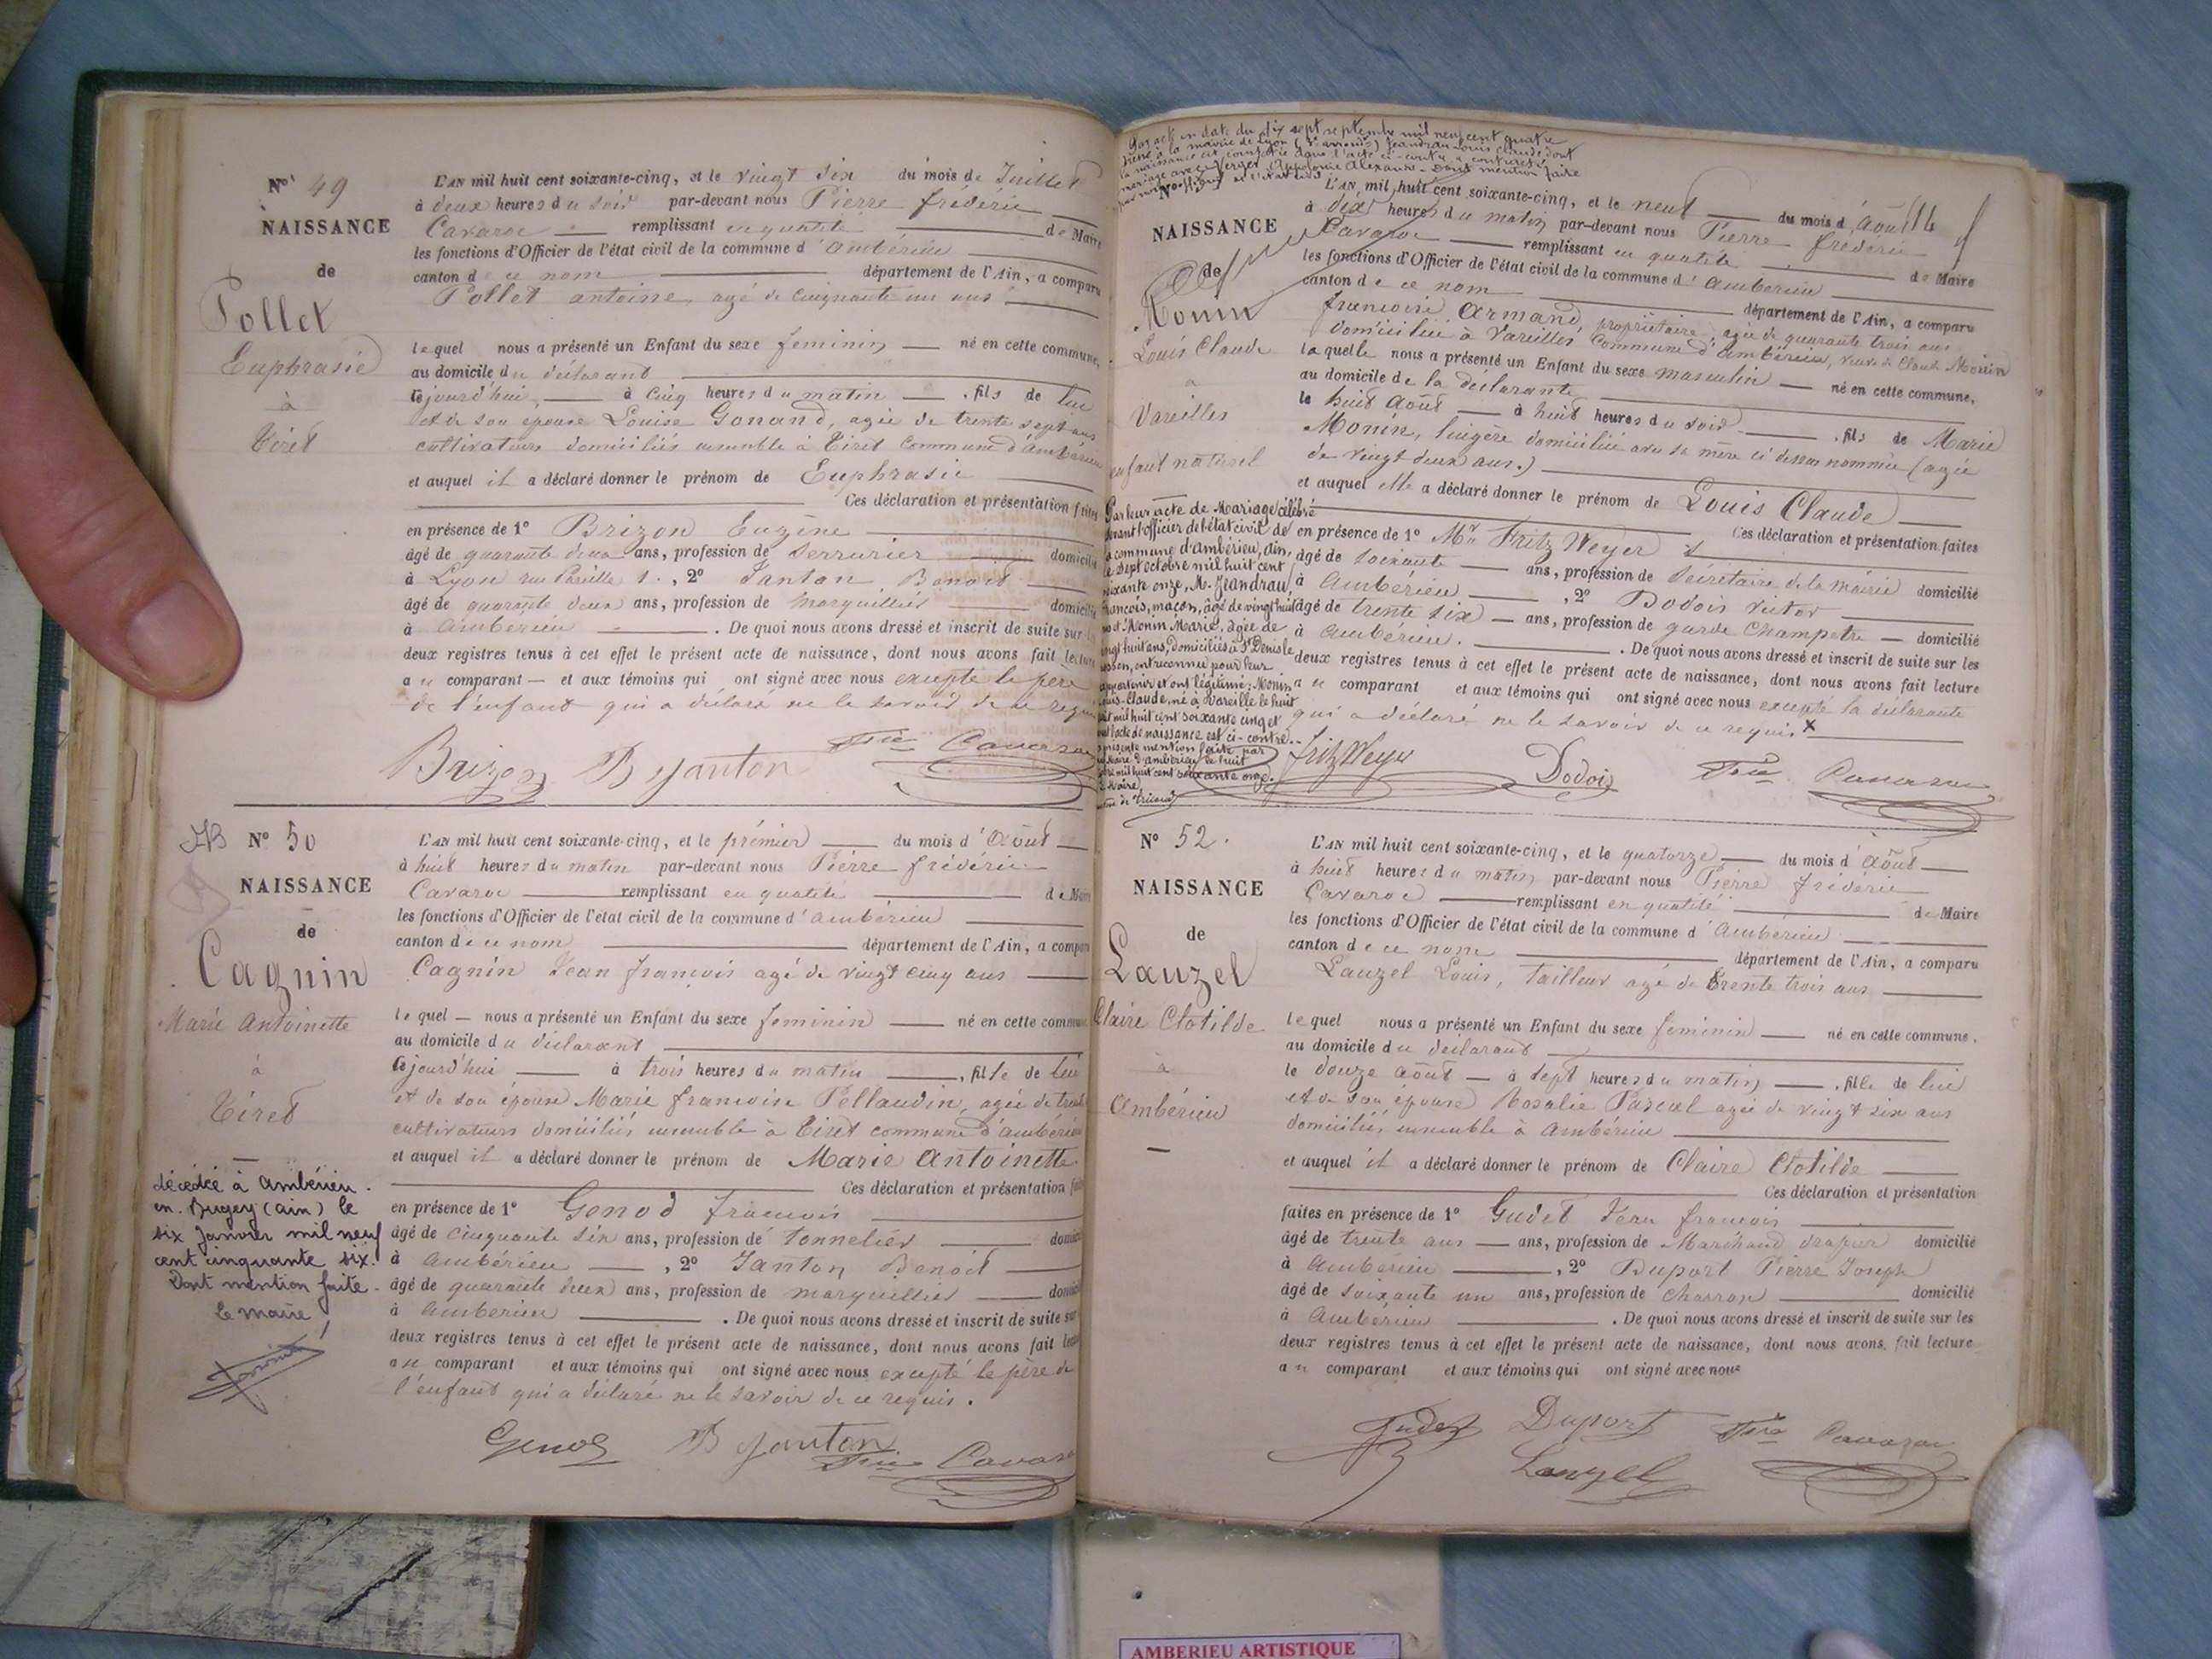 N° 49
NAISSANCE
de
Pollet
Euphrasie
à
Tiret
L'AN mil huit cent soixante-cinq, et le vingt six du mois de Juillet
à deux heures du soir par-devant nous Pierre frédéric
Cavaroc remplissant en qualité de Maire
les fonctions d'Officier de l'état civil de la commune d'ambérieu
canton de ce nom département de l'Ain, a comparu
Pollet antoine, agé de cinquante un ans
lequel nous a présenté un Enfant du sexe feminin né en cette commune,
au domicile du déclarant
cejourd'hui à cinq heures du matin, fils de lui
et de son épouse Louise Gonand, agée de trente sept ans
cultivateurs domiciliés ensemble à Tiret commune d'ambérieu
et auquel il a déclaré donner le prénom de Euphrasie
Ces déclaration et présentation faites
en présence de 1° Brizon Eugène
âgé de quarante deux ans, profession de serrurier domicilié
à Lyon rue 1., 2° Janton Benoit
âgé de quarante deux ans, profession de marguillier domicilié
à ambérieu. De quoi nous avons dressé et inscrit de suite sur les
deux registres tenus à cet effet le présent acte de naissance, dont nous avons fait lecture
au comparant et aux témoins qui ont signé avec nous excepté le père
de l'enfant qui a déclaré ne le savoir de ce requis
Brizon B Janton Fric Cavaroc
N° 50
NAISSANCE
de
Cagnin
Marie Antoinette
à
Tiret
décédée à Ambérieu
en Bugey (ain) le
six Janvier mil neuf
cent cinquante six.
Dont mention faite.
Le maire,
L'AN mil huit cent soixante-cinq, et le prémier du mois d'Août
à huit heures du matin par-devant nous Pierre frédéric
Cavaroc remplissant en qualité de Maire
les fonctions d'Officier de l'état civil de la commune d'ambérieu
canton de ce nom département de l'Ain, a comparu
Cagnin Jean françois agé de vingt cinq ans
lequel nous a présenté un Enfant du sexe feminin né en cette commune
au domicile du déclarant
cejourd'hui à trois heures du matin, fille de lui
et de son épouse Marie francoise Pellaudin, agée de trente
cultivateurs domiciliés ensemble à Tiret commune d'ambérieu
et auquel il a déclaré donner le prénom de Marie Antoinette
Ces déclaration et présentation faites
en présence de 1° Genod françois
âgé de cinquante six ans, profession de tonnelier domicilié
à ambérieu, 2° Janton Benoit
âgé de quarante deux ans, profession de marguillier domicilié
à ambérieu. De quoi nous avons dressé et inscrit de suite sur
deux registres tenus à cet effet le présent acte de naissance, dont nous avons fait lecture
au comparant et aux témoins qui ont signé avec nous excepté le père de
l'enfant qui a déclaré ne le savoir de ce requis.
Genod B Janton Fric Cavaroc
Par acte en date du dix sept septembre mil neuf cent quatre
dressé à la mairie de Lyon Jeandrau Louis Claude dont
la naissance est constatée dans l'acte ci-contre a contracté
mariage avec Verger Alexandre - Dont mention faite
NAISSANCE
de
Monin
Louis Claude
à
Vareilles
enfant naturel
Par leur acte de Mariage célébré
devant l'officier de l'état civil de
la commune d'ambérieu, ain,
le sept octobre mil huit cent
soixante onze, M. Jeandrau,
françois, maçon, âgé de vingt huit
ans et Monin Marie, âgée de
vingt huit ans, domiciliés à St Denis le
chosson, ont reconnu pour leur
appartenir et ont légitimé: Monin
Louis-Claude, né à Vareille le huit
août mil huit cent soixante cinq et
dont l'acte de naissance est ci-contre.
La présente mention faite par
le Maire d'ambérieu le huit
octobre mil huit cent soixante onze.
Le Maire
L'AN mil huit cent soixante-cinq, et le neuf du mois d'août
à dix heures du matin par-devant nous Pierre frédéric
Cavaroc remplissant en qualité de Maire
les fonctions d'Officier de l'état civil de la commune d'ambérieu
canton de ce nom département de l'Ain, a comparu
francoise Armand, propriétaire, agée de quarante trois ans
domiciliée à Vareilles Commune d'ambérieu, veuve de Claude Monin
laquelle nous a présenté un Enfant du sexe masculin né en cette commune,
au domicile de la déclarante
le huit Août à huit heures du soir, fils de Marie
Monin, lingère domiciliée avec sa mère ci dessus nommée (agée
de vingt deux ans.)
et auquel elle a déclaré donner le prénom de Louis Claude
Ces déclaration et présentation faites
en présence de 1° Mr Fritz Weyer
âgé de soixante ans, profession de sécrétaire de la mairie domicilié
à ambérieu, 2° Dodois victor
âgé de trente six ans, profession de garde champetre domicilié
à ambérieu. De quoi nous avons dressé et inscrit de suite sur les
deux registres tenus à cet effet le présent acte de naissance, dont nous avons fait lecture
au comparant et aux témoins qui ont signé avec nous excepté la déclarante
qui a déclaré ne le savoir de ce requis
Fritz Weyer Dodois Fric Cavaroc
N° 52.
NAISSANCE
de
Lauzel
Claire Clotilde
à
Ambérieu
L'AN mil huit cent soixante-cinq, et le quatorze du mois d'août
à huit heures du matin par-devant nous Pierre frédéric
Cavaroc remplissant en qualité de Maire
les fonctions d'Officier de l'état civil de la commune d'ambérieu
canton de ce nom département de l'Ain, a comparu
Lauzel Louis, tailleur agé de trente trois ans
lequel nous a présenté un Enfant du sexe feminin né en cette commune,
au domicile du déclarant
le douze août à sept heures du matin, fille de lui
et de son épouse Rosalie Pascal agée de vingt six ans
domiciliés ensemble à ambérieu
et auquel il a déclaré donner le prénom de Claire Clotilde
Ces déclaration et présentation
faites en présence de 1° Gudet Jean françois
âgé de trente ans ans, profession de Marchand drapier domicilié
à ambérieu, 2° Duport Pierre Joseph
âgé de soixante un ans, profession de charron domicilié
à ambérieu. De quoi nous avons dressé et inscrit de suite sur les
deux registres tenus à cet effet le présent acte de naissance, dont nous avons fait lecture
au comparant et aux témoins qui ont signé avec nous
Gudet Duport Fric Cavaroc
Lauzel
AMBERIEU ARTISTIQUE